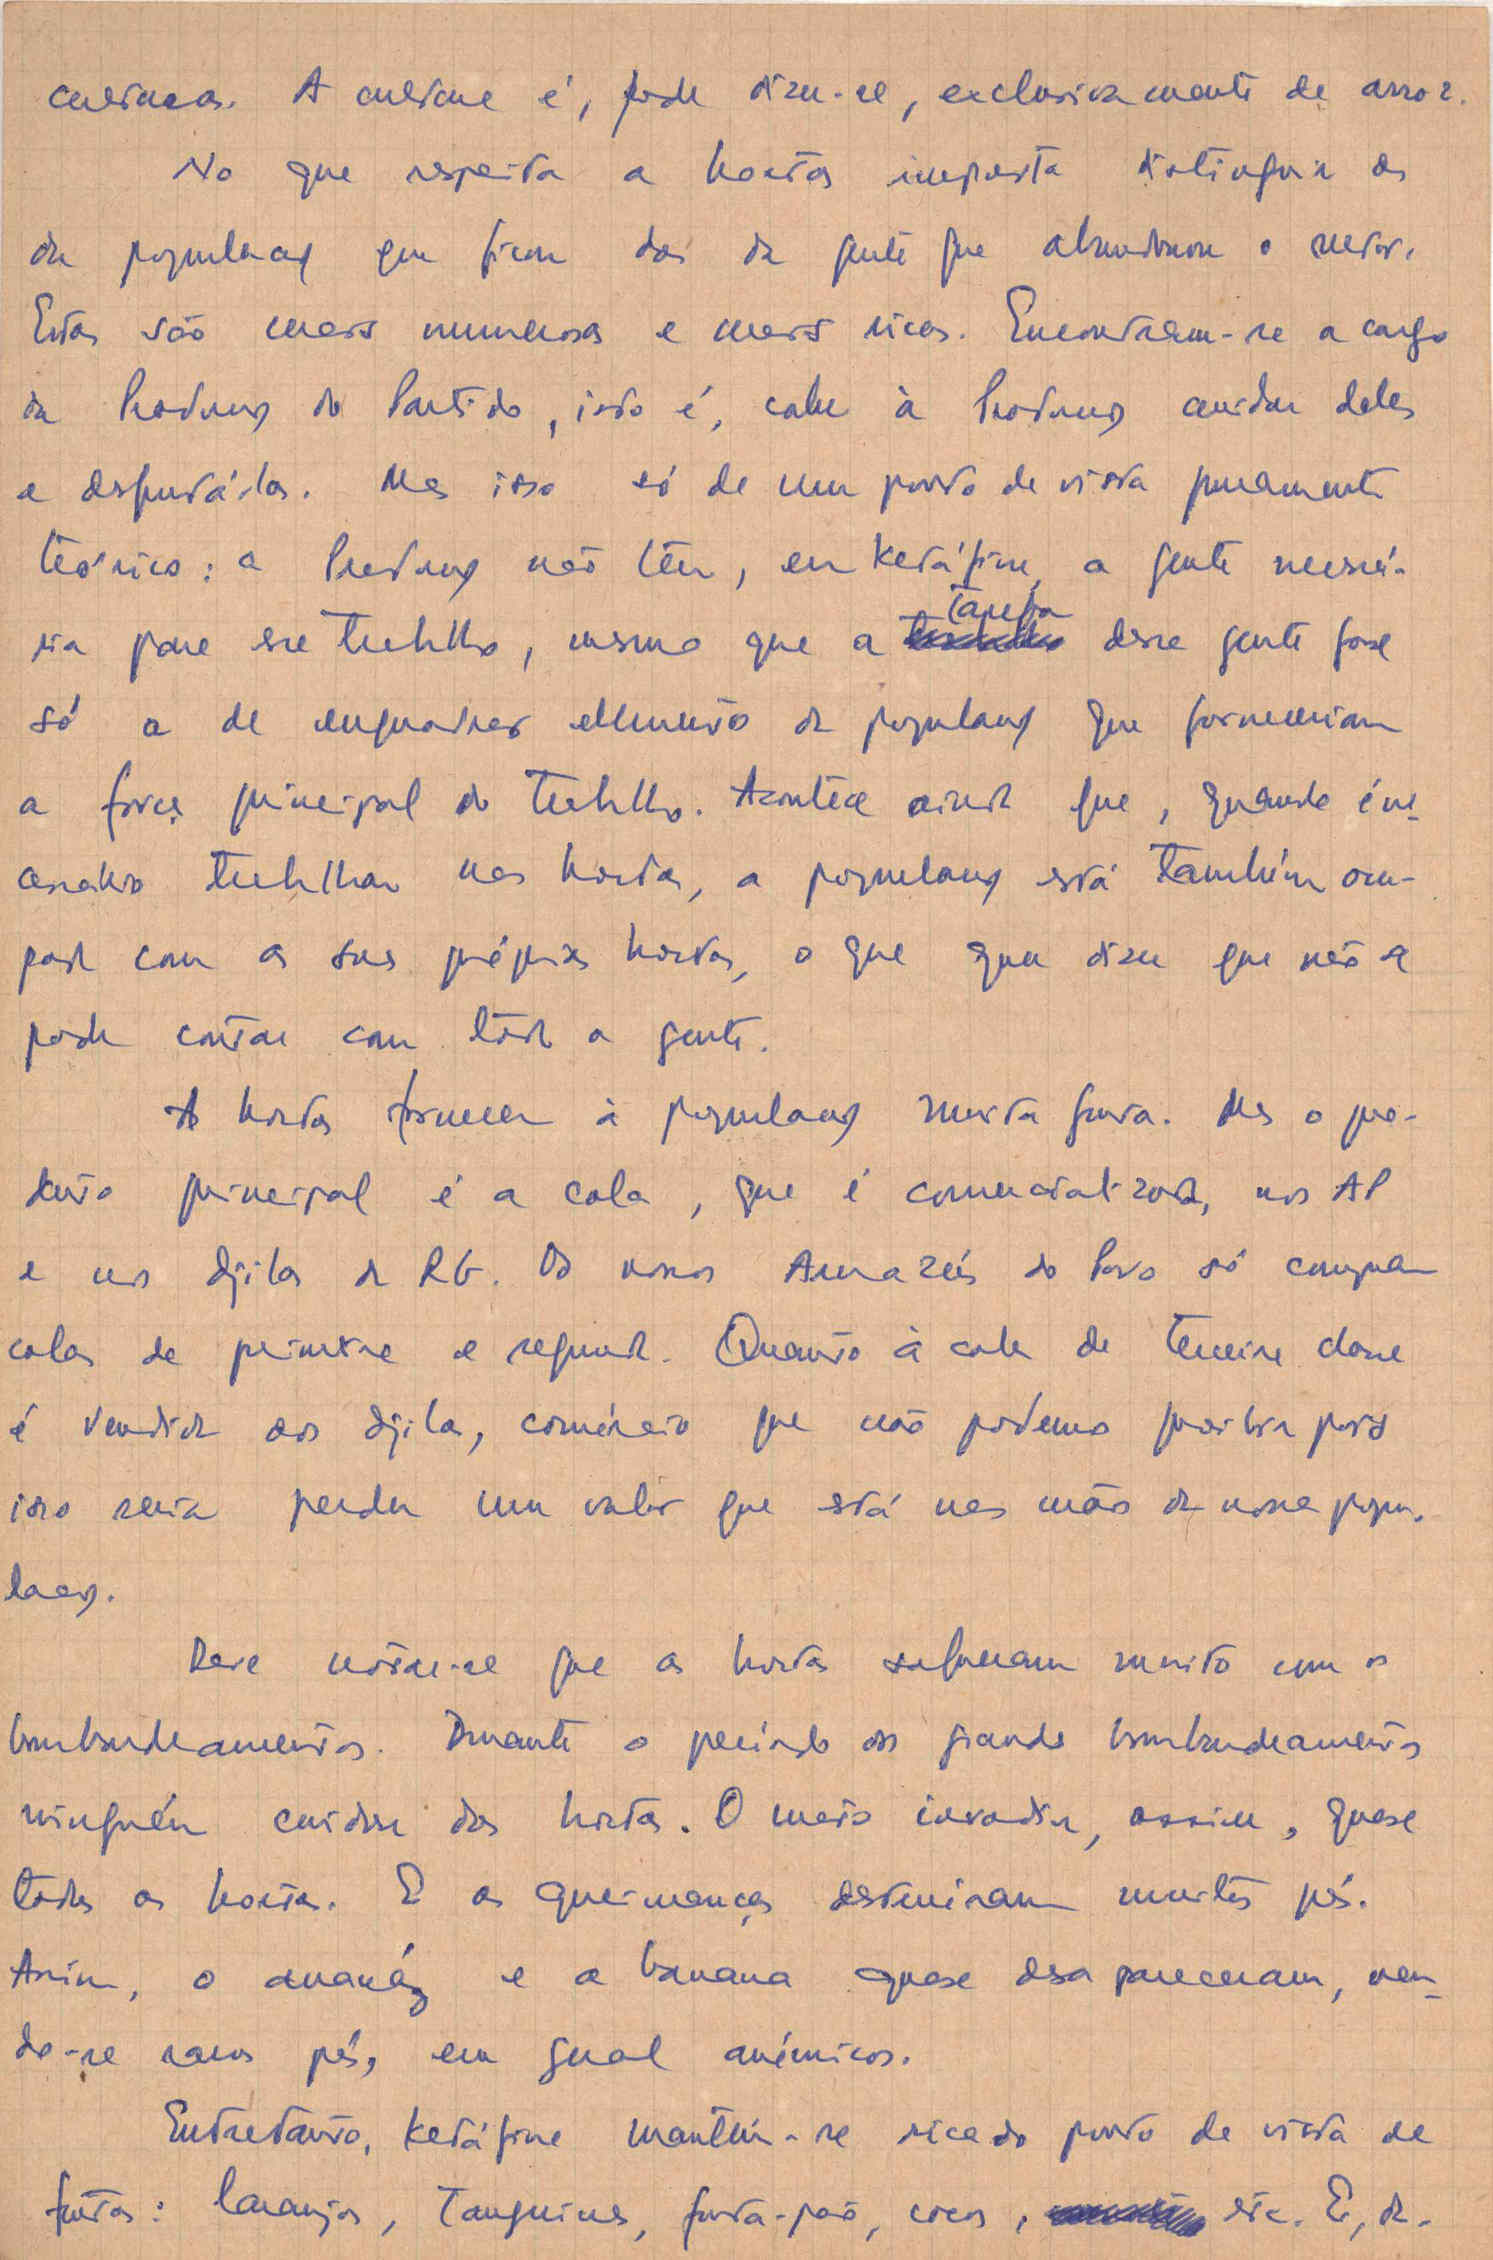 culturas. A cultura é, pode dizer-se, exclusivamente de arroz.
No que respeita a hortas importa distinguir as
da população que ficou das da gente que abandonou o sector.
Estas são mais numerosas e mais ricas. Encontram-se a cargo
da Produção do Partido, isto é, cabe à Produção cuidar delas
e desfrutá-las. Mas isso só de um ponto de vista puramente
teórico: a Produção não têm, em Ketáfine, a gente necessá-
ria para esse trabalho, mesmo que a tarefa dessa gente fosse
só a de enquadrar elementos da população que forneceriam
a força principal do trabalho. Acontece ainda que, quando é ne-
cessário trabalhar nas hortas, a população está também ocu-
pada com as suas próprias hortas, o que quer dizer que não se
pode contar com toda a gente.
As hortas fornecem à população muita fruta. Mas o pro-
duto principal é a cola, que é comercializada, nos AP
e nos djilas da RG. Os nossos Armazéns do Povo só compram
colas de primeira e segunda. Quanto à cola de terceira classe
é vendida aos djilas, comércio que não podemos proibir pois
isso seria perder um valor que está nas mãos da nossa popu-
lação.
Deve notar-se que as hortas sofreram muito com os
bombardeamentos. Durante o período dos grandes bombardeamentos
ninguém cuidou das hortas. O mato invadiu, assim, quase
todas as hortas. E as queimanças destruiram muitos pés.
Assim, o ananáz e a banana quase desapareceram, ven-
do-se raros pés, em geral anémicos.
Entretanto, Ketáfine mantém-se rica do ponto de vista de
frutas: laranjas, tangerinas, fruta-pão, cocos, etc. E, de-